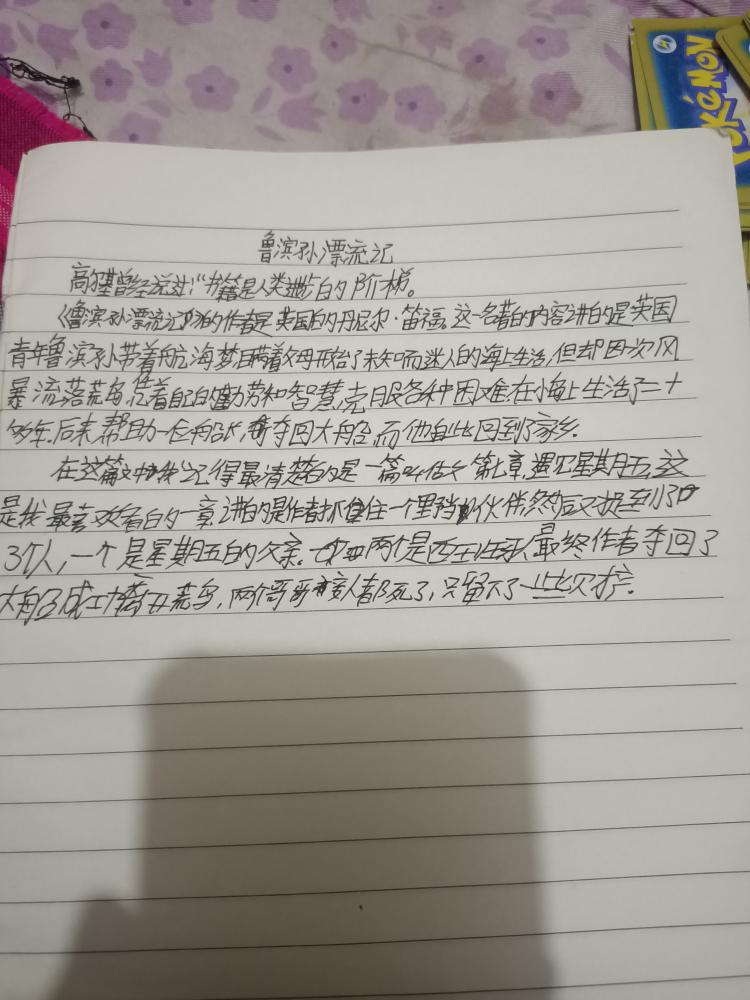 POKÉMON
鲁滨孙漂流记
高尔基曾经说过："书籍是人类进步的阶梯。
《鲁滨孙漂流记》的作者是英国的丹尼尔·笛福。这一名著的内容讲的是英国
青年鲁滨孙带着航海梦,瞒着父母开始了未知而迷人的海上生活,但却因次风
暴流落荒岛,凭着自己的勤劳和智慧克服各种困难.在海上生活了二十
多年.后来帮助一位船长,夺回大船,而他自此回到了家乡.
在这篇文中我记得最清楚的是一篇叫 第七章,遇见星期五,这
是我最喜欢看的的一章,讲的是作者抓住一个 伙伴然后又捉到了
3个人,一个是星期五的父亲. 两个是西班牙人,最终作者夺回了
大船成功 荒岛,两个哥哥 人都死了,只留下了一些财产.